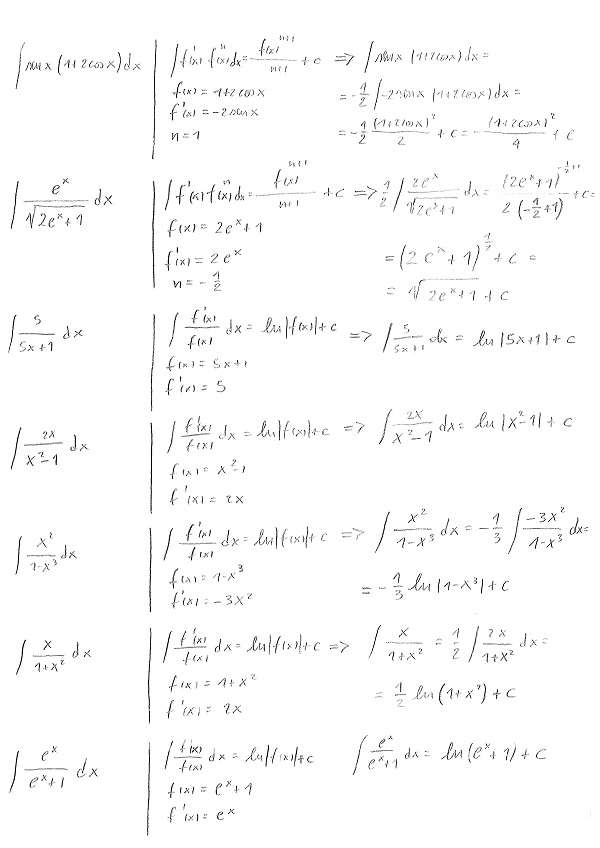 ∫ sin x (1+2cosx) dx | ∫ f'(x) · fⁿ(x) dx = f(x)ⁿ⁺¹/(n+1) + c => ∫ sin x (1+2cosx) dx =
f(x) = 1+2cosx = -1/2 ∫ -2sinx (1+2cosx) dx =
f'(x) = -2sinx
n = 1 = -1/2 (1+2cosx)²/2 + c = -(1+2cosx)²/4 + c
∫ eˣ/√(2eˣ+1) dx | ∫ f'(x) f(x)ⁿ dx = f(x)ⁿ⁺¹/(n+1) + c => 1/2 ∫ 2eˣ/√(2eˣ+1) dx = (2eˣ+1)^(-1/2+1)/(2(-1/2+1)) + c =
f(x) = 2eˣ+1
f'(x) = 2eˣ = (2eˣ+1)^(1/2) + c =
n = -1/2 = √(2eˣ+1) + c
∫ 5/(5x+1) dx | ∫ f'(x)/f(x) dx = ln|f(x)| + c => ∫ 5/(5x+1) dx = ln|5x+1| + c
f(x) = 5x+1
f'(x) = 5
∫ 2x/(x²-1) dx | ∫ f'(x)/f(x) dx = ln|f(x)| + c => ∫ 2x/(x²-1) dx = ln|x²-1| + c
f(x) = x²-1
f'(x) = 2x
∫ x²/(1-x³) dx | ∫ f'(x)/f(x) dx = ln|f(x)| + c => ∫ x²/(1-x³) dx = -1/3 ∫ -3x²/(1-x³) dx =
f(x) = 1-x³
f'(x) = -3x² = -1/3 ln|1-x³| + c
∫ x/(1+x²) dx | ∫ f'(x)/f(x) dx = ln|f(x)| + c => ∫ x/(1+x²) = 1/2 ∫ 2x/(1+x²) dx =
f(x) = 1+x² = 1/2 ln(1+x²) + c
f'(x) = 2x
∫ eˣ/(eˣ+1) dx | ∫ f'(x)/f(x) dx = ln|f(x)| + c ∫ eˣ/(eˣ+1) dx = ln(eˣ+1) + c
f(x) = eˣ+1
f'(x) = eˣ